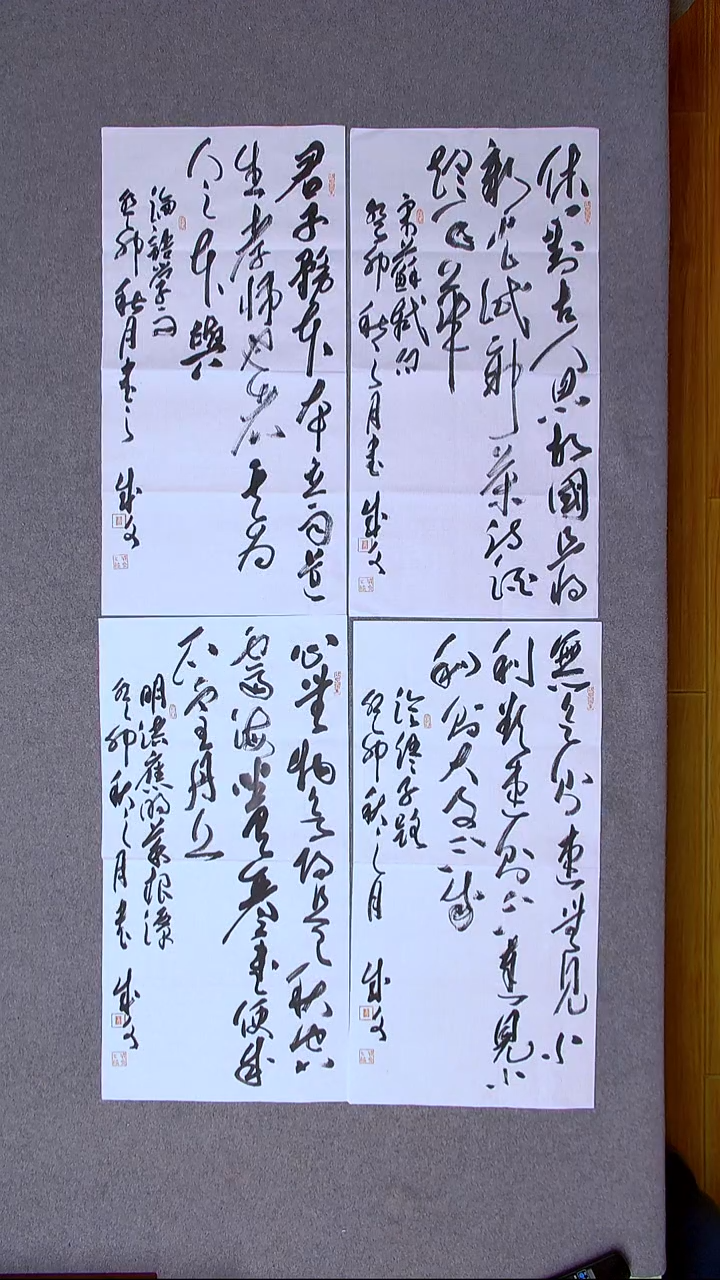 休對古人思故國且將
新火試新茶詩酒
趁年華
宋蘇軾句
癸卯秋之月書 成文
君子務本本立而道
生孝悌也者其為
人之本與
論語學而
癸卯秋月書之 成文
無欲則速無見小
利欲速則不達見小
利則大事不成
論語子路
癸卯秋之月 成文
心無物欲即是秋空
霽海坐有琴書便成
石室丹丘
明洪應明菜根譚
癸卯秋之月書 成文